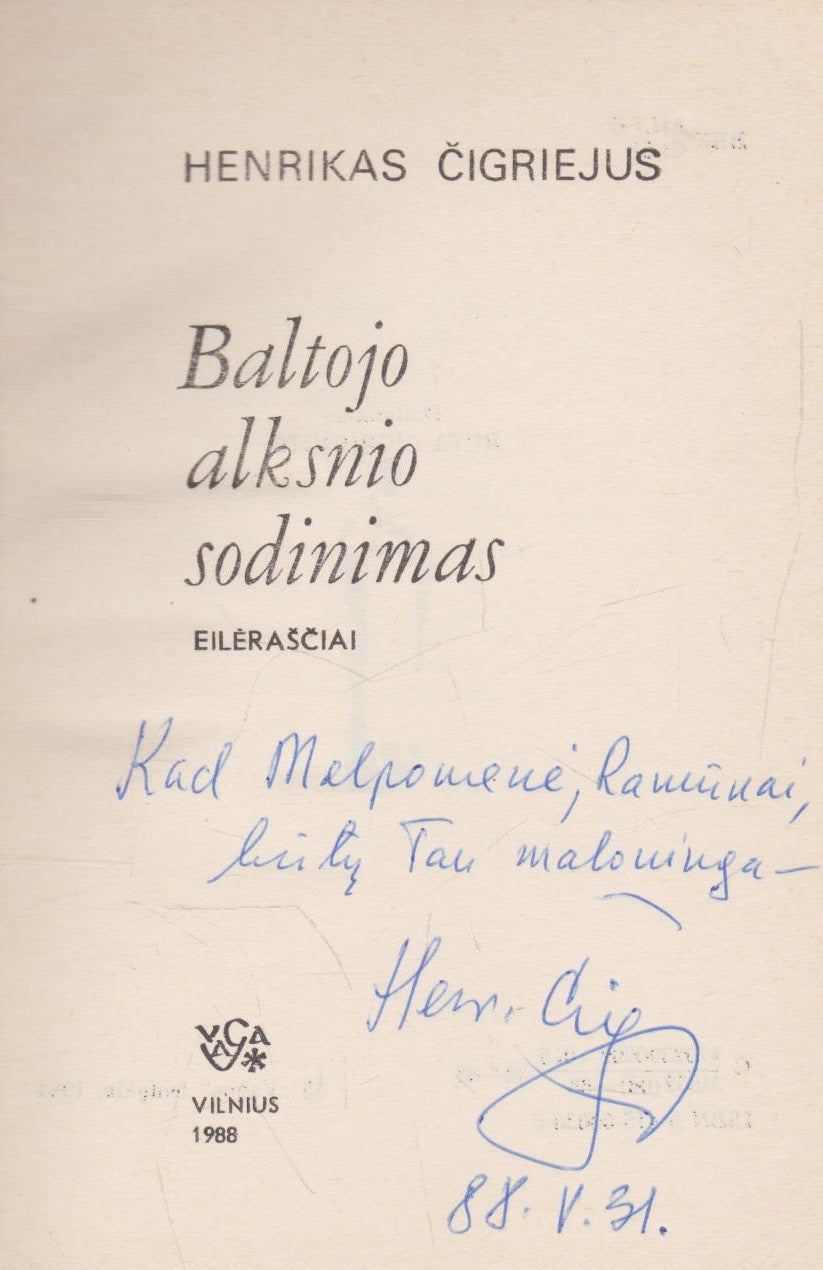 HENRIKAS ČIGRIEJUS
Baltojo
alksnio
sodinimas
EILĖRAŠČIAI
Kad Melpomenė, Ramūnai,
būtų Tau maloninga —
Henr. Čig
VAGA
VILNIUS
1988
88. V. 31.